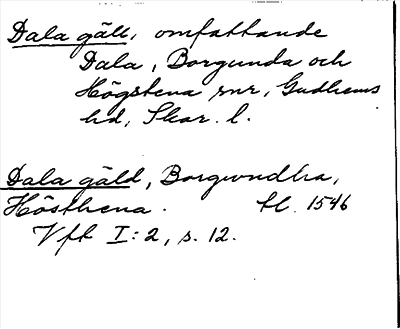 Dala gäll, omfattande
Dala, Borgunda och
Högstena snr, Gudhems
hd, Skar. l.
Dala gäld, Borgwndha,
Hösthena. tl. 1546
Vft I:2, s. 12.